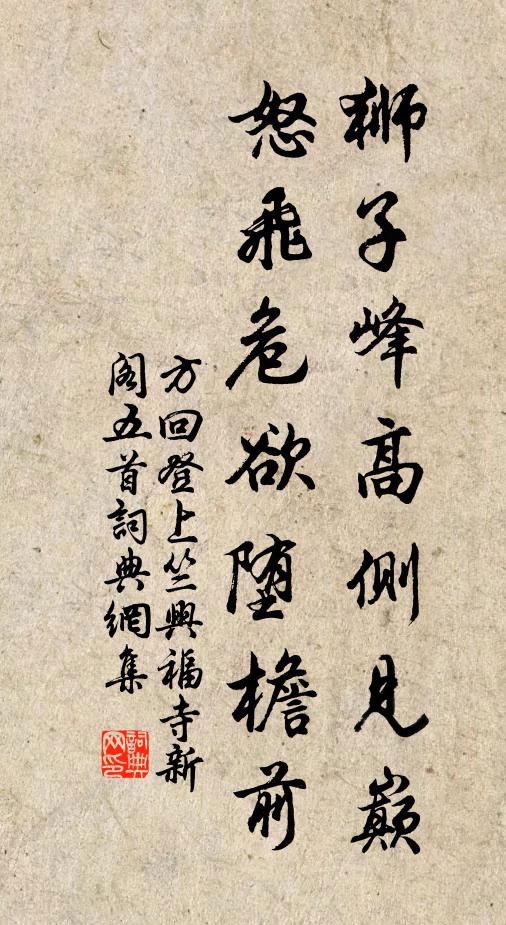 獅子峰高側見巔
怒飛危欲墮檐前
方回登上竺興福寺新
閣五首詞典網集
詞典網印